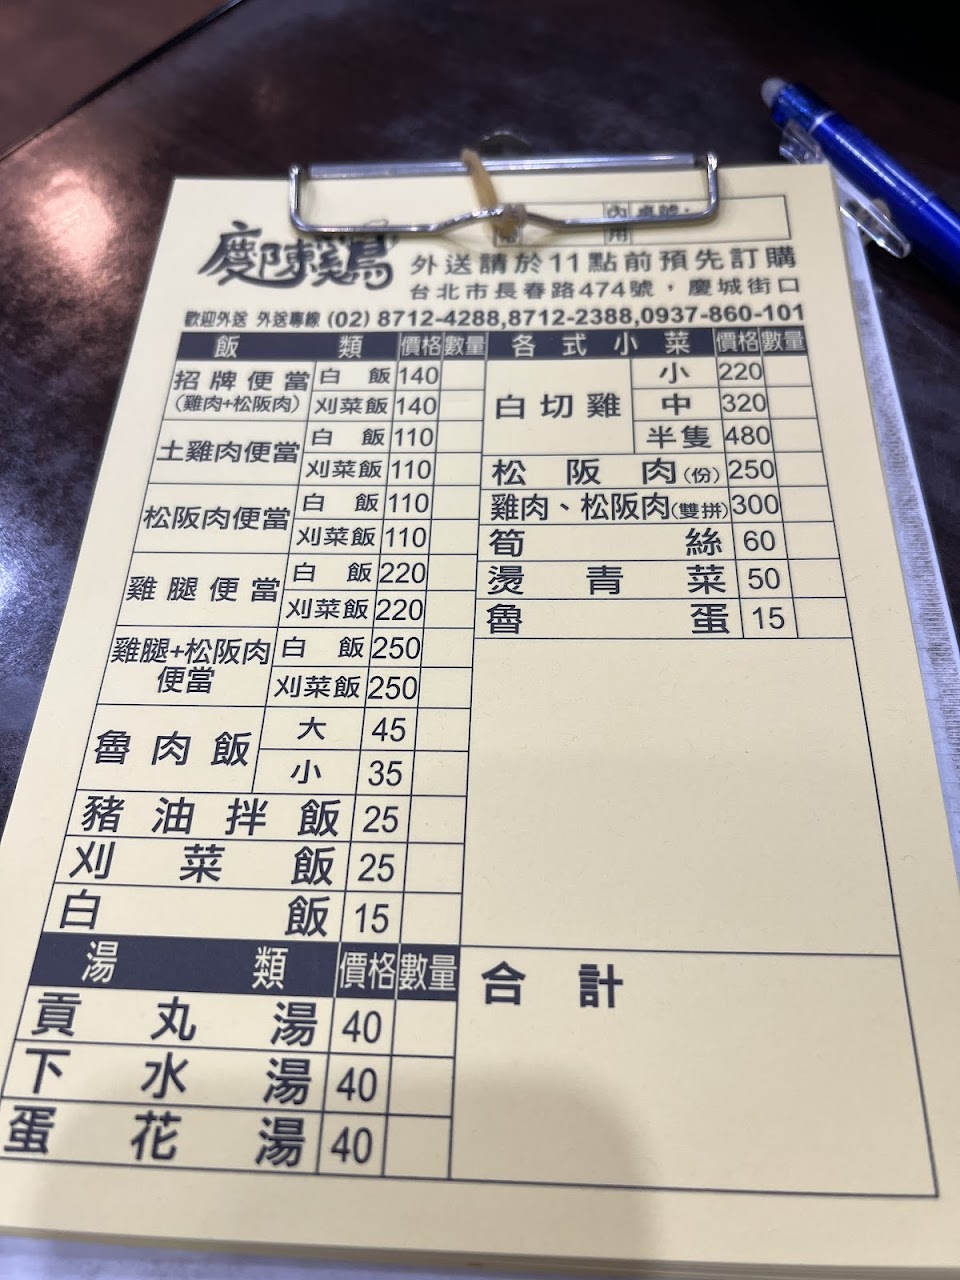 內 桌號:
用
慶陳雞
外送請於11點前預先訂購
台北市長春路474號,慶城街口
歡迎外送 外送專線 (02) 8712-4288,8712-2388,0937-860-101
飯類 價格 數量
招牌便當 (雞肉+松阪肉) 白飯 140
刈菜飯 140
土雞肉便當 白飯 110
刈菜飯 110
松阪肉便當 白飯 110
刈菜飯 110
雞腿便當 白飯 220
刈菜飯 220
雞腿+松阪肉便當 白飯 250
刈菜飯 250
魯肉飯 大 45
小 35
豬油拌飯 25
刈菜飯 25
白飯 15
湯類 價格 數量
貢丸湯 40
下水湯 40
蛋花湯 40
各式小菜 價格 數量
白切雞 小 220
中 320
半隻 480
松阪肉(份) 250
雞肉、松阪肉(雙拼) 300
筍絲 60
燙青菜 50
魯蛋 15
合計